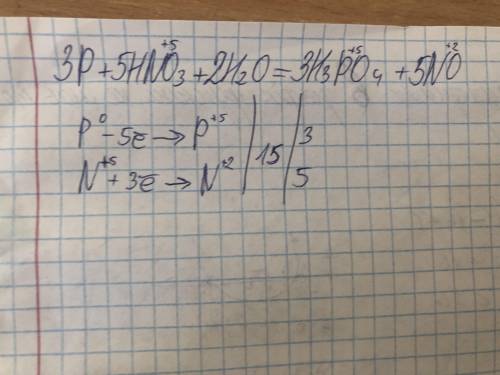 3P + 5HN⁺⁵O₃ + 2H₂O = 3H₃P⁺⁵O₄ + 5N⁺²O
P⁰ - 5e̅ → P⁺⁵ | 15 | 3
N⁺⁵ + 3e̅ → N⁺² | | 5